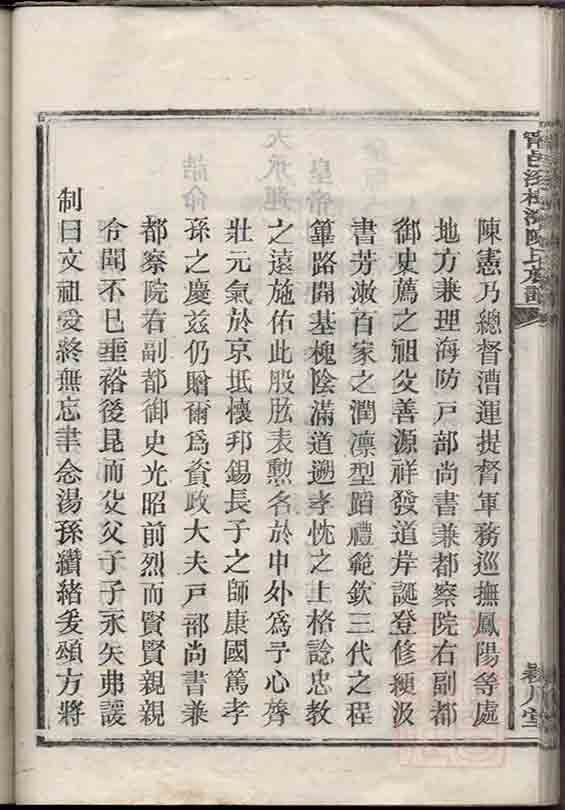 甯邑深柳灣陳氏族譜
陳憲乃總督漕運提督軍務巡撫鳳陽等處
地方兼理海防戶部尚書兼都察院右副都
御史薦之祖父善源祥發道岸誕登修綆汲
書芳漱百家之潤凛型蹈禮範欽三代之程
篳路開基槐陰滿道遡孝忱之上格諗忠教
之遠施佑此股肱表勲名於中外爲予心膂
壯元氣於京坻懷邦錫長子之師康國篤孝
孫之慶茲仍贈爾爲資政大夫戶部尚書兼
都察院右副都御史光昭前烈而賢賢親親
令聞不已垂裕後昆而父父子子永矢弗諼
制曰文祖受終無忘聿念湯孫纘緒爰頌方將
潁川堂